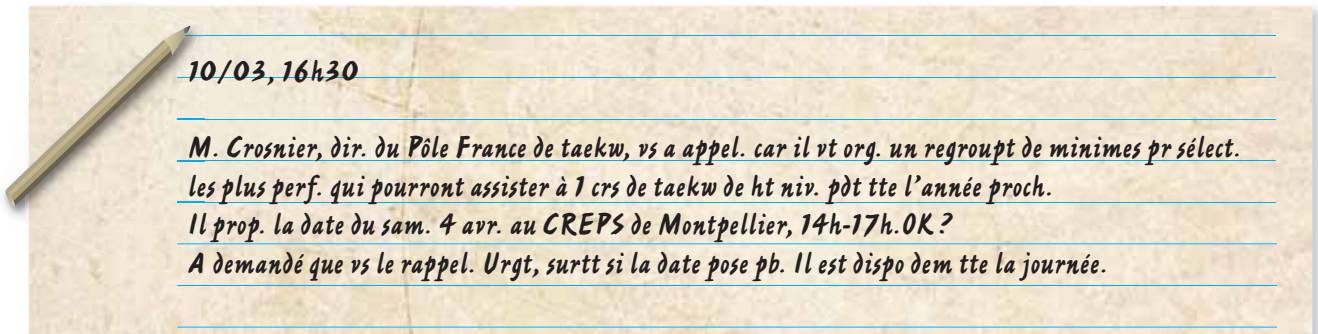 10/03, 16h30
M. Crosnier, dir. du Pôle France de taekw, vs a appel. car il vt org. un regroupt de minimes pr sélect.
les plus perf. qui pourront assister à 1 crs de taekw de ht niv. pdt tte l'année proch.
Il prop. la date du sam. 4 avr. au CREPS de Montpellier, 14h-17h.OK ?
A demandé que vs le rappel. Urgt, surtt si la date pose pb. Il est dispo dem tte la journée.